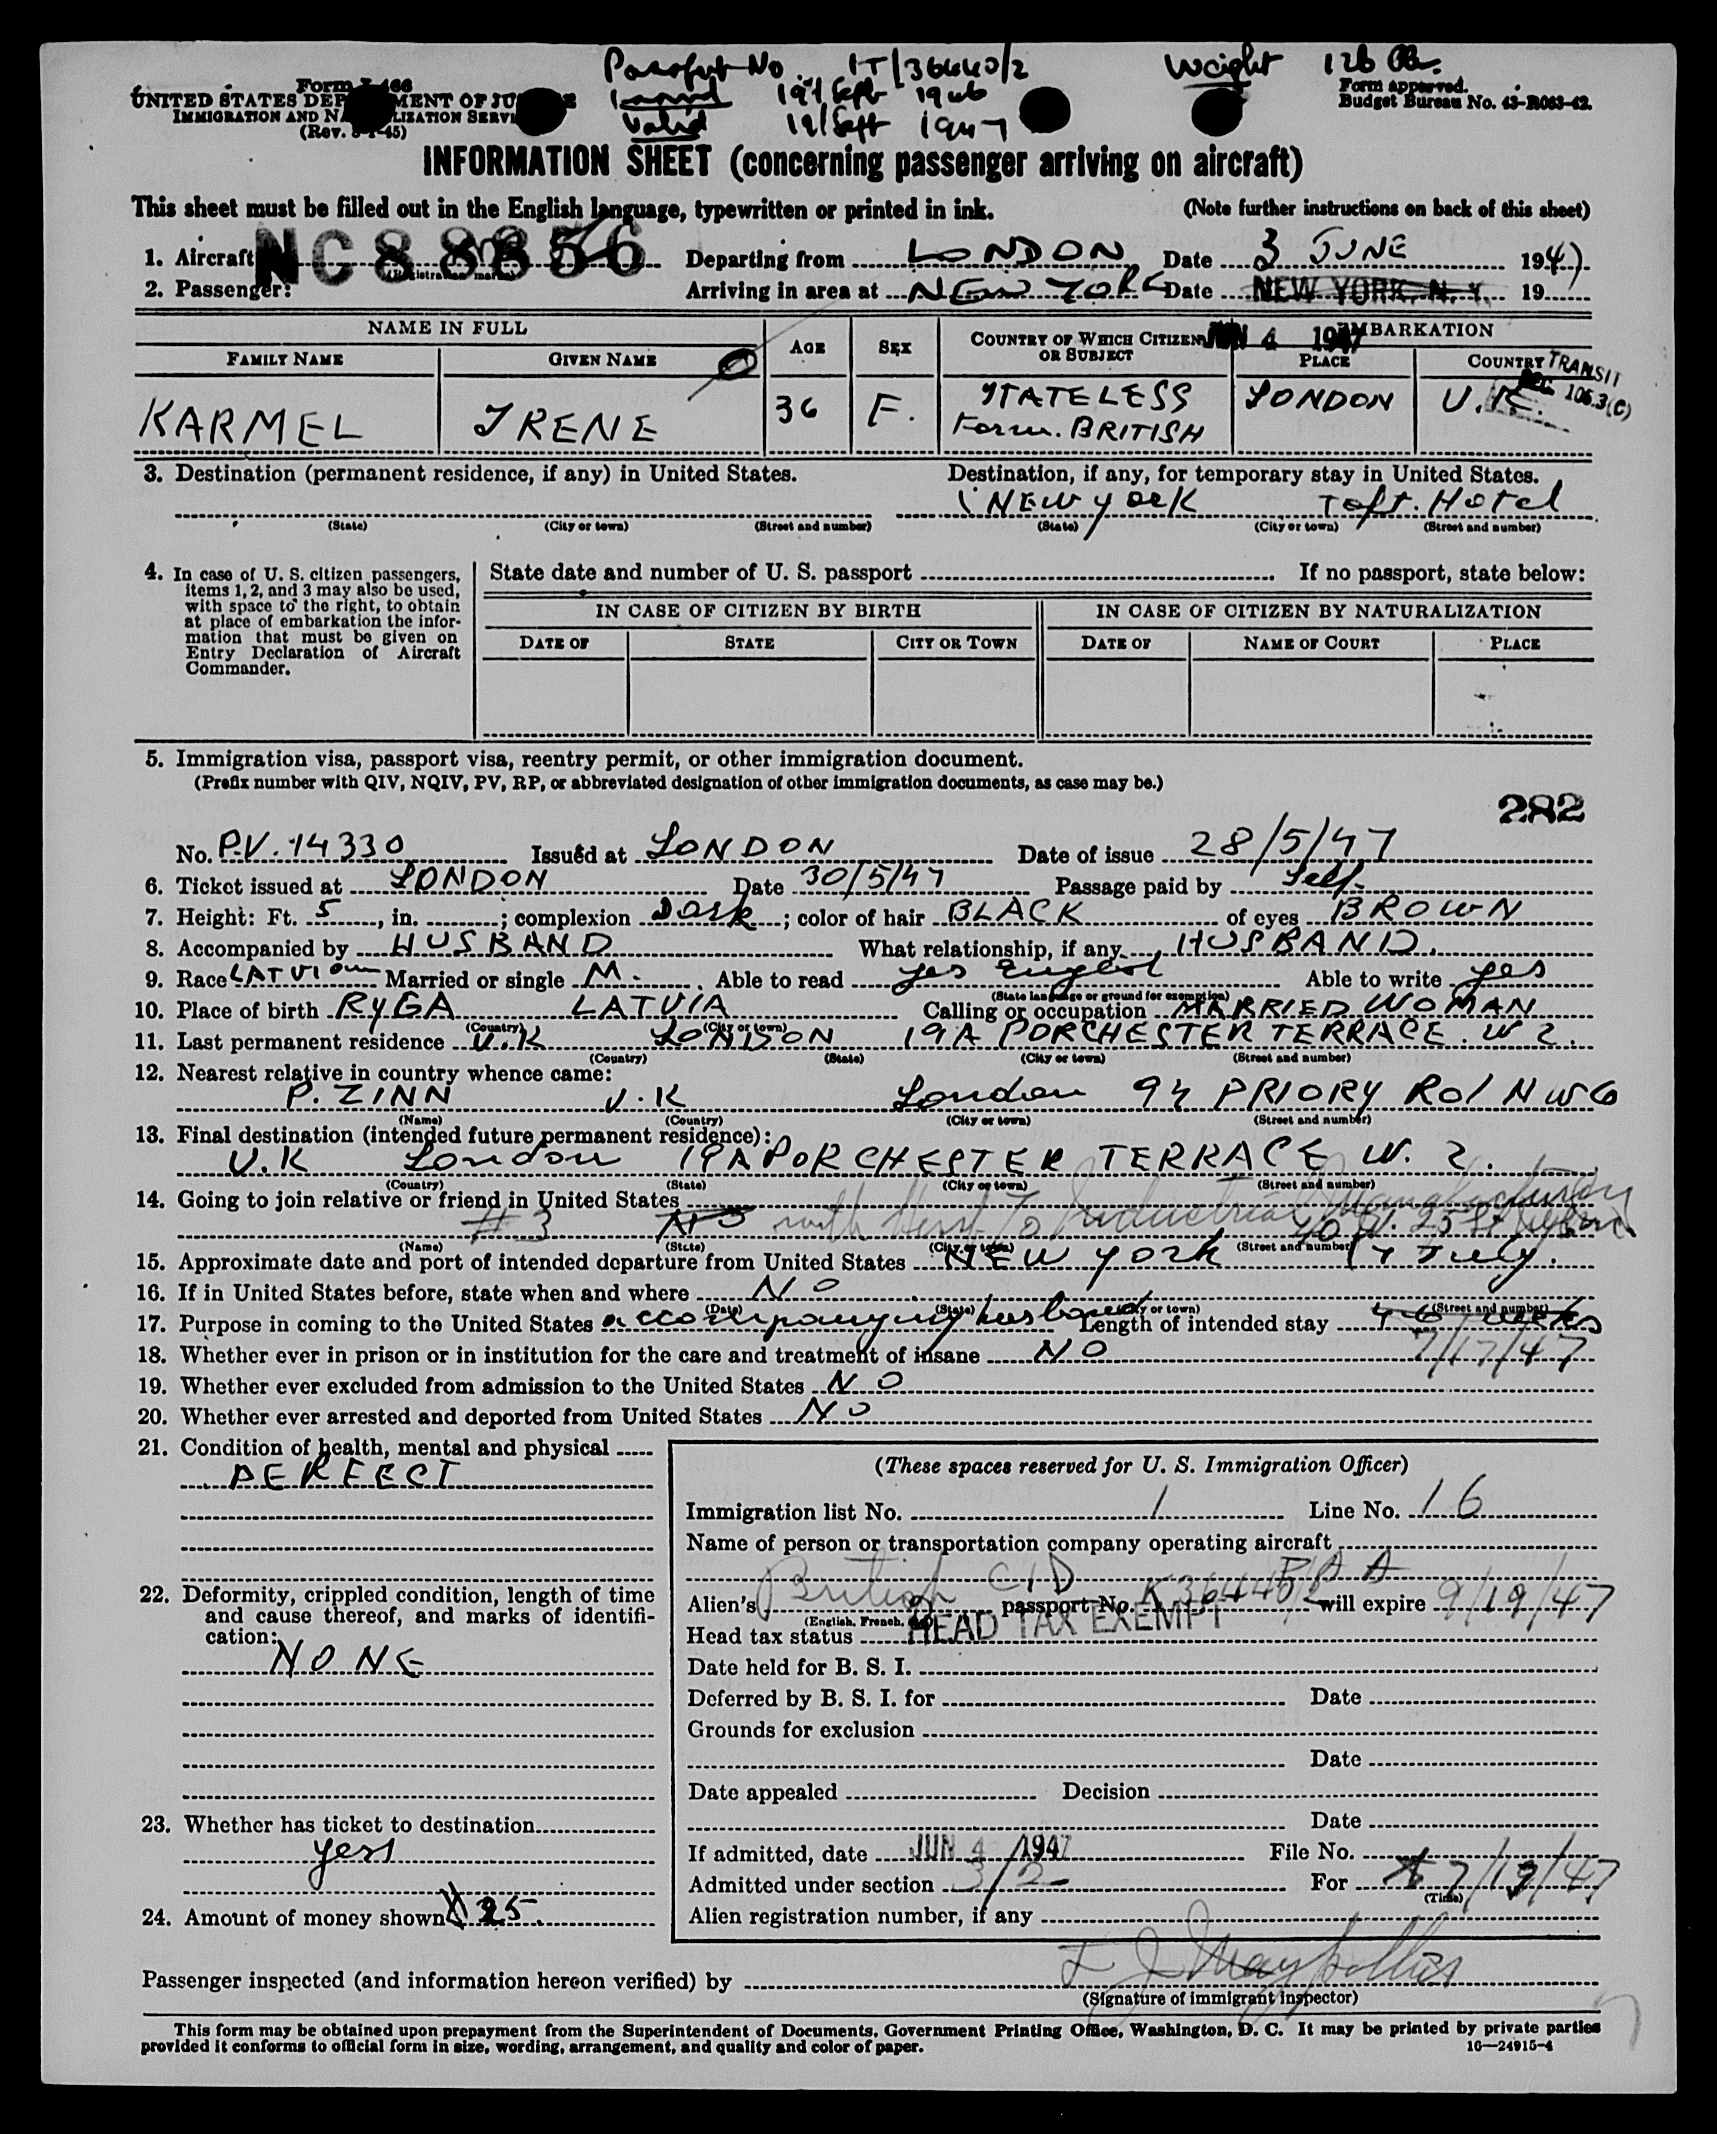 Passport No IT/36440/2 Weight 126 lbs.
Issued 19/Sept 1946
Valid 19/Sept 1947
Form 466
UNITED STATES DEP MENT OF JU
IMMIGRATION AND NA LIZATION SERVI
(Rev. 45)
Form approved.
Budget Bureau No. 43-R063-42.
INFORMATION SHEET (concerning passenger arriving on aircraft)
This sheet must be filled out in the English language, typewritten or printed in ink. (Note further instructions on back of this sheet)
1. Aircraft NC 88856 (Registration marks) Departing from LONDON Date 3 JUNE 1947
2. Passenger: Arriving in area at NEW YORK Date NEW YORK, N. Y. 19
JUN 4 1947
NAME IN FULL AGE SEX COUNTRY OF WHICH CITIZEN OR SUBJECT EMBARKATION
FAMILY NAME GIVEN NAME PLACE COUNTRY
TRANSIT
SEC 106.3(C)
KARMEL IRENE 36 F. STATELESS LONDON U.K.
Form. BRITISH
3. Destination (permanent residence, if any) in United States. Destination, if any, for temporary stay in United States.
NEW YORK Taft. Hotel
(State) (City or town) (Street and number) (State) (City or town) (Street and number)
4. In case of U. S. citizen passengers, items 1, 2, and 3 may also be used, with space to the right, to obtain at place of embarkation the information that must be given on Entry Declaration of Aircraft Commander.
State date and number of U. S. passport If no passport, state below:
IN CASE OF CITIZEN BY BIRTH IN CASE OF CITIZEN BY NATURALIZATION
DATE OF STATE CITY OR TOWN DATE OF NAME OF COURT PLACE
5. Immigration visa, passport visa, reentry permit, or other immigration document.
(Prefix number with QIV, NQIV, PV, RP, or abbreviated designation of other immigration documents, as case may be.)
282
No. P.V. 14330 Issued at LONDON Date of issue 28/5/47
6. Ticket issued at LONDON Date 30/5/47 Passage paid by Self.
7. Height: Ft. 5, in. ; complexion Dark; color of hair BLACK of eyes BROWN
8. Accompanied by HUSBAND What relationship, if any HUSBAND.
9. Race LATVIan Married or single M. Able to read yes English Able to write yes
(State language or ground for exemption)
10. Place of birth RyGA LATVIA Calling or occupation MARRIED WOMAN
(Country) (City or town)
11. Last permanent residence U.K LONDON 19A PORCHESTER TERRACE. W 2.
(Country) (State) (City or town) (Street and number)
12. Nearest relative in country whence came:
P. ZINN U.K London 94 PRIORY Rd/ N W 6
(Name) (Country) (City or town) (Street and number)
13. Final destination (intended future permanent residence):
U.K London 19A PORCHESTER TERRACE W. 2.
(Country) (State) (City or town) (Street and number)
14. Going to join relative or friend in United States
#3 NO with Husb. To Industrial Manufacturing
(Name) (State) (City or town) (Street and number)
15. Approximate date and port of intended departure from United States NEW york 17 July.
16. If in United States before, state when and where NO
(Date) (State) (City or town) (Street and number)
17. Purpose in coming to the United States accompanying husband Length of intended stay 4-6 weeks
7/17/47
18. Whether ever in prison or in institution for the care and treatment of insane NO
19. Whether ever excluded from admission to the United States NO
20. Whether ever arrested and deported from United States NO
21. Condition of health, mental and physical
PERFECT
22. Deformity, crippled condition, length of time and cause thereof, and marks of identification:
NONE
23. Whether has ticket to destination
yes
24. Amount of money shown $ 25.
(These spaces reserved for U. S. Immigration Officer)
Immigration list No. 1 Line No. 16
Name of person or transportation company operating aircraft
PAA
Alien's British CID passport No. K364402 will expire 9/19/47
(English, French, etc.)
Head tax status HEAD TAX EXEMPT
Date held for B. S. I.
Deferred by B. S. I. for Date
Grounds for exclusion
Date
Date appealed Decision
Date
If admitted, date JUN 4 1947 File No.
Admitted under section 3/2 For 7/17/47
(Time)
Alien registration number, if any
Passenger inspected (and information hereon verified) by
(Signature of immigrant inspector)
This form may be obtained upon prepayment from the Superintendent of Documents, Government Printing Office, Washington, D. C. It may be printed by private parties
provided it conforms to official form in size, wording, arrangement, and quality and color of paper. 16—24915-4